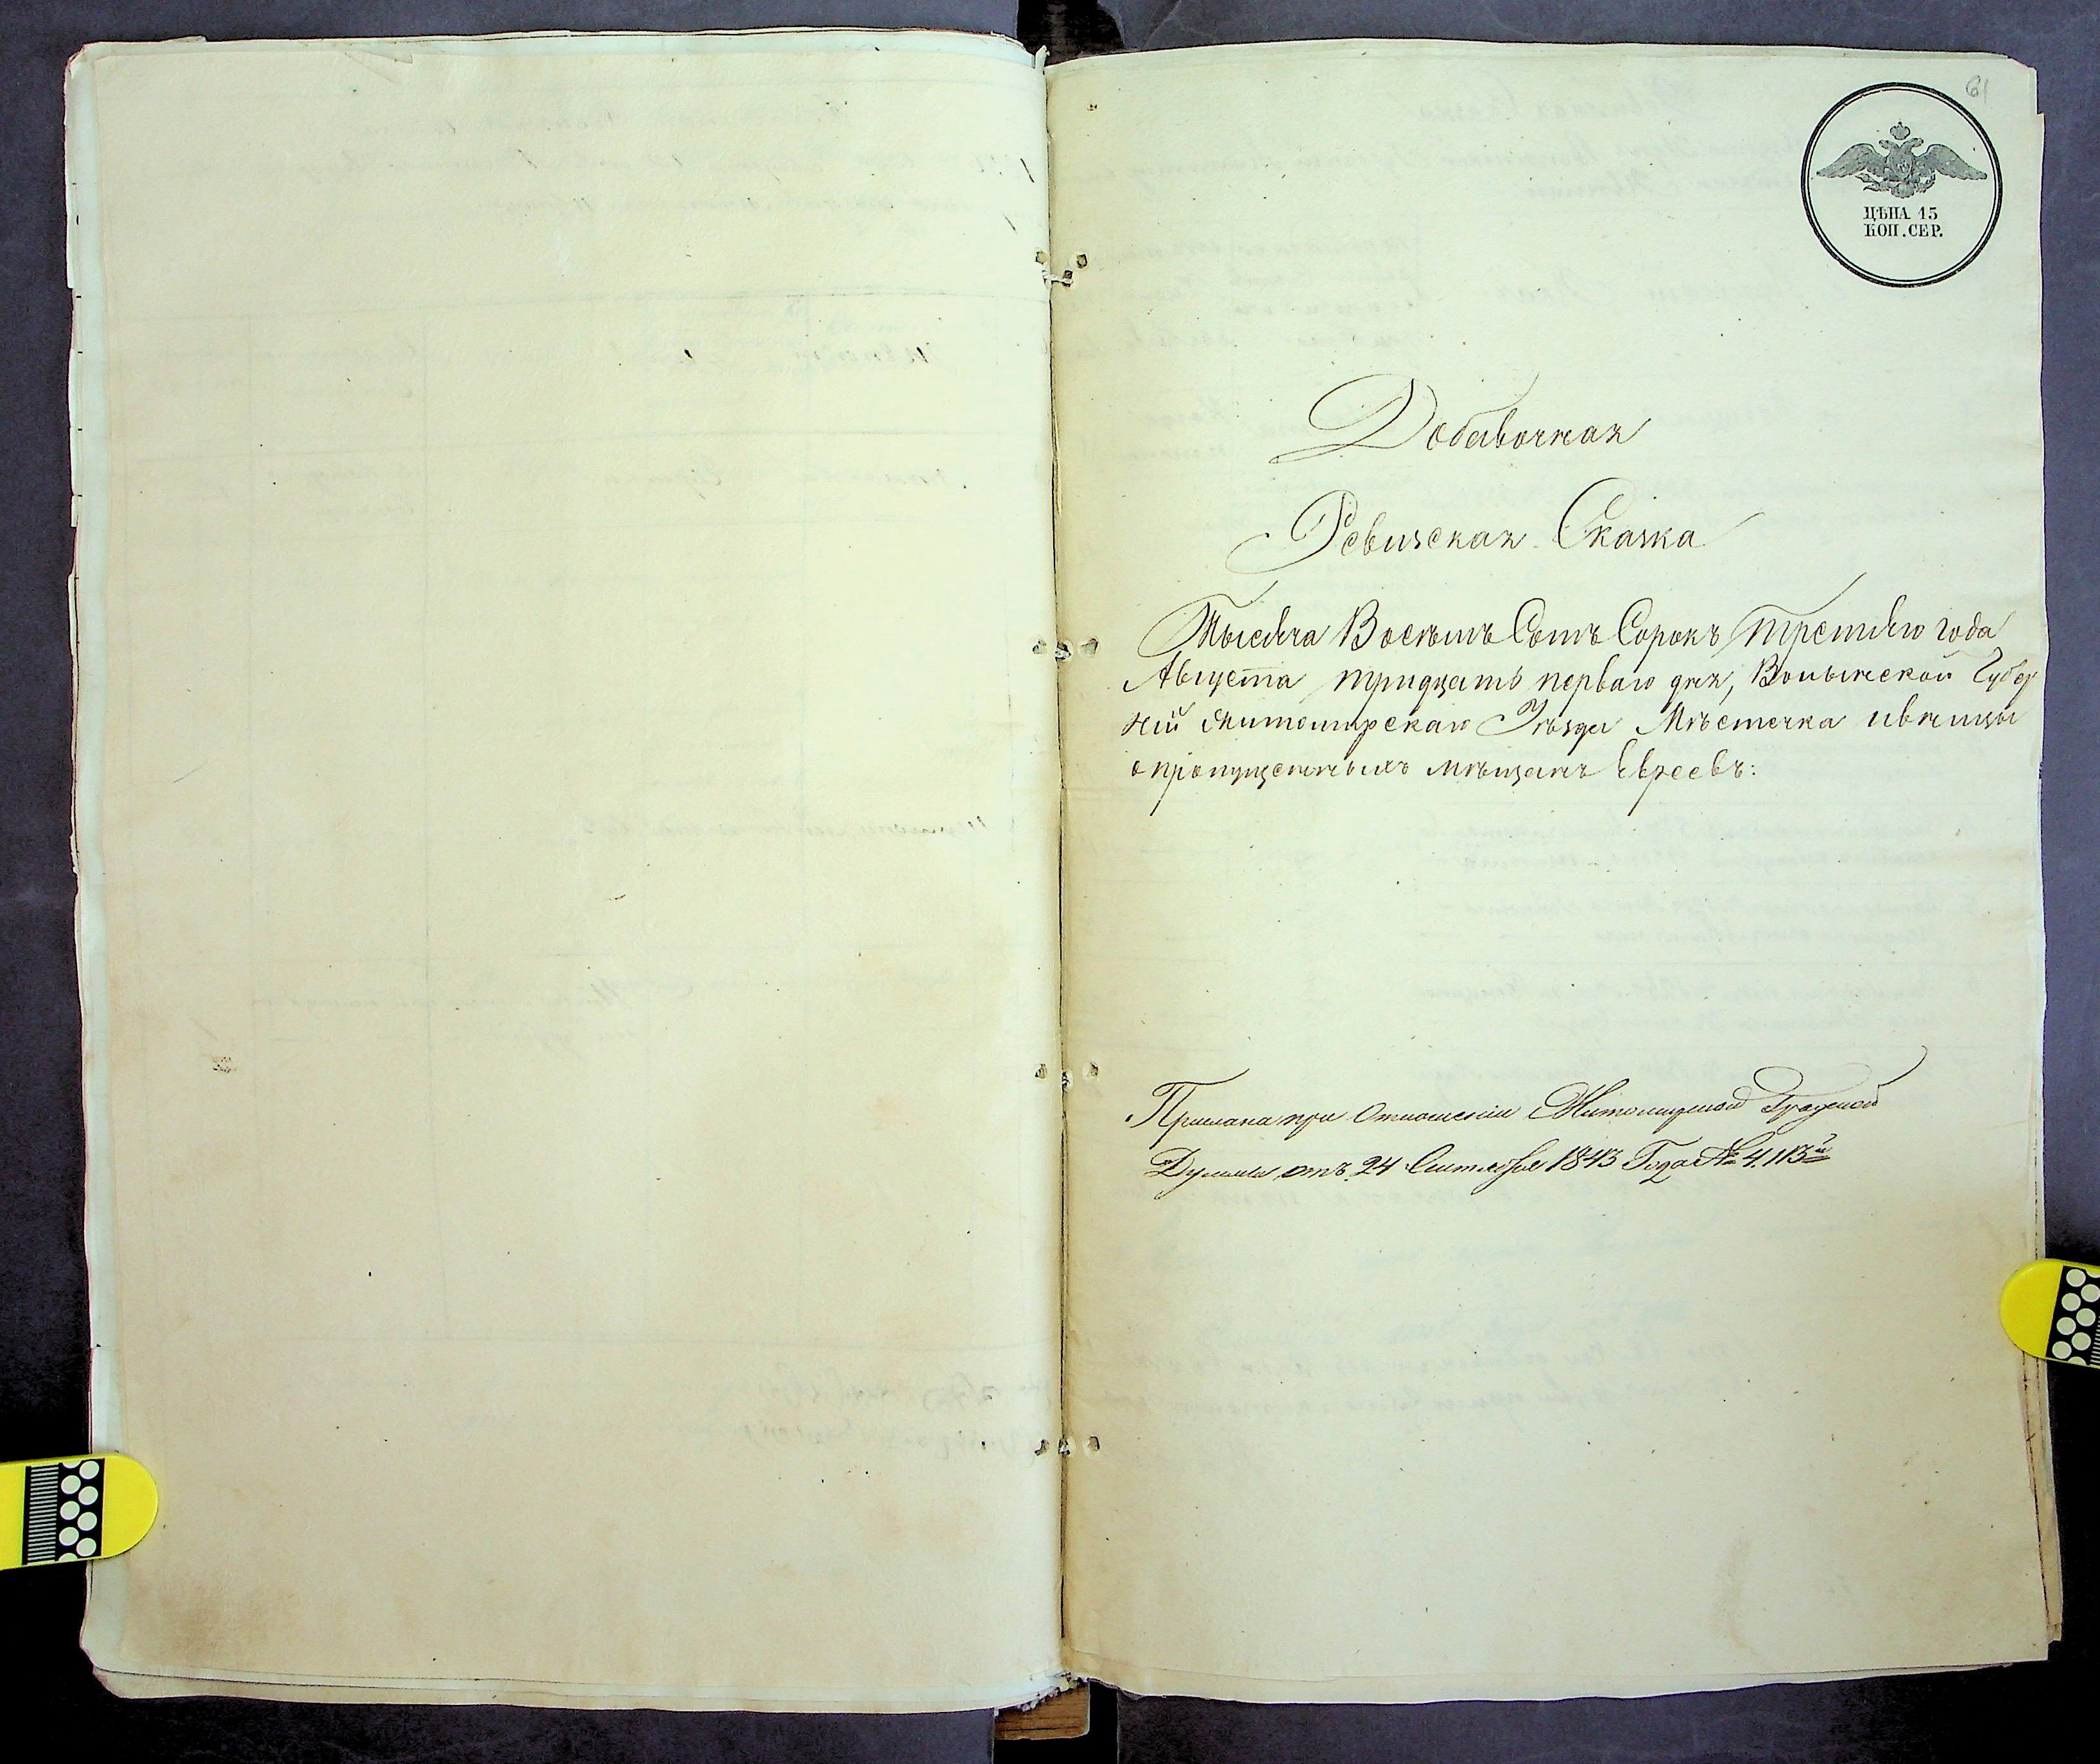 61
ЦѢНА 15
КОП. СЕР.
Добавочная
Ревизская Сказка
Тысяча Восемь Сотъ Сорокъ третяго года
Августа тридцать перваго дня, Волынской Губер
ніи Житомирскаго Уѣзда Мѣстечка ивницы
о пропущенныхъ мѣщанъ Евреевъ:
Прислана при Отношении Житомирской Градской
Думы отъ 24 Сентября 1843 Года № 4113